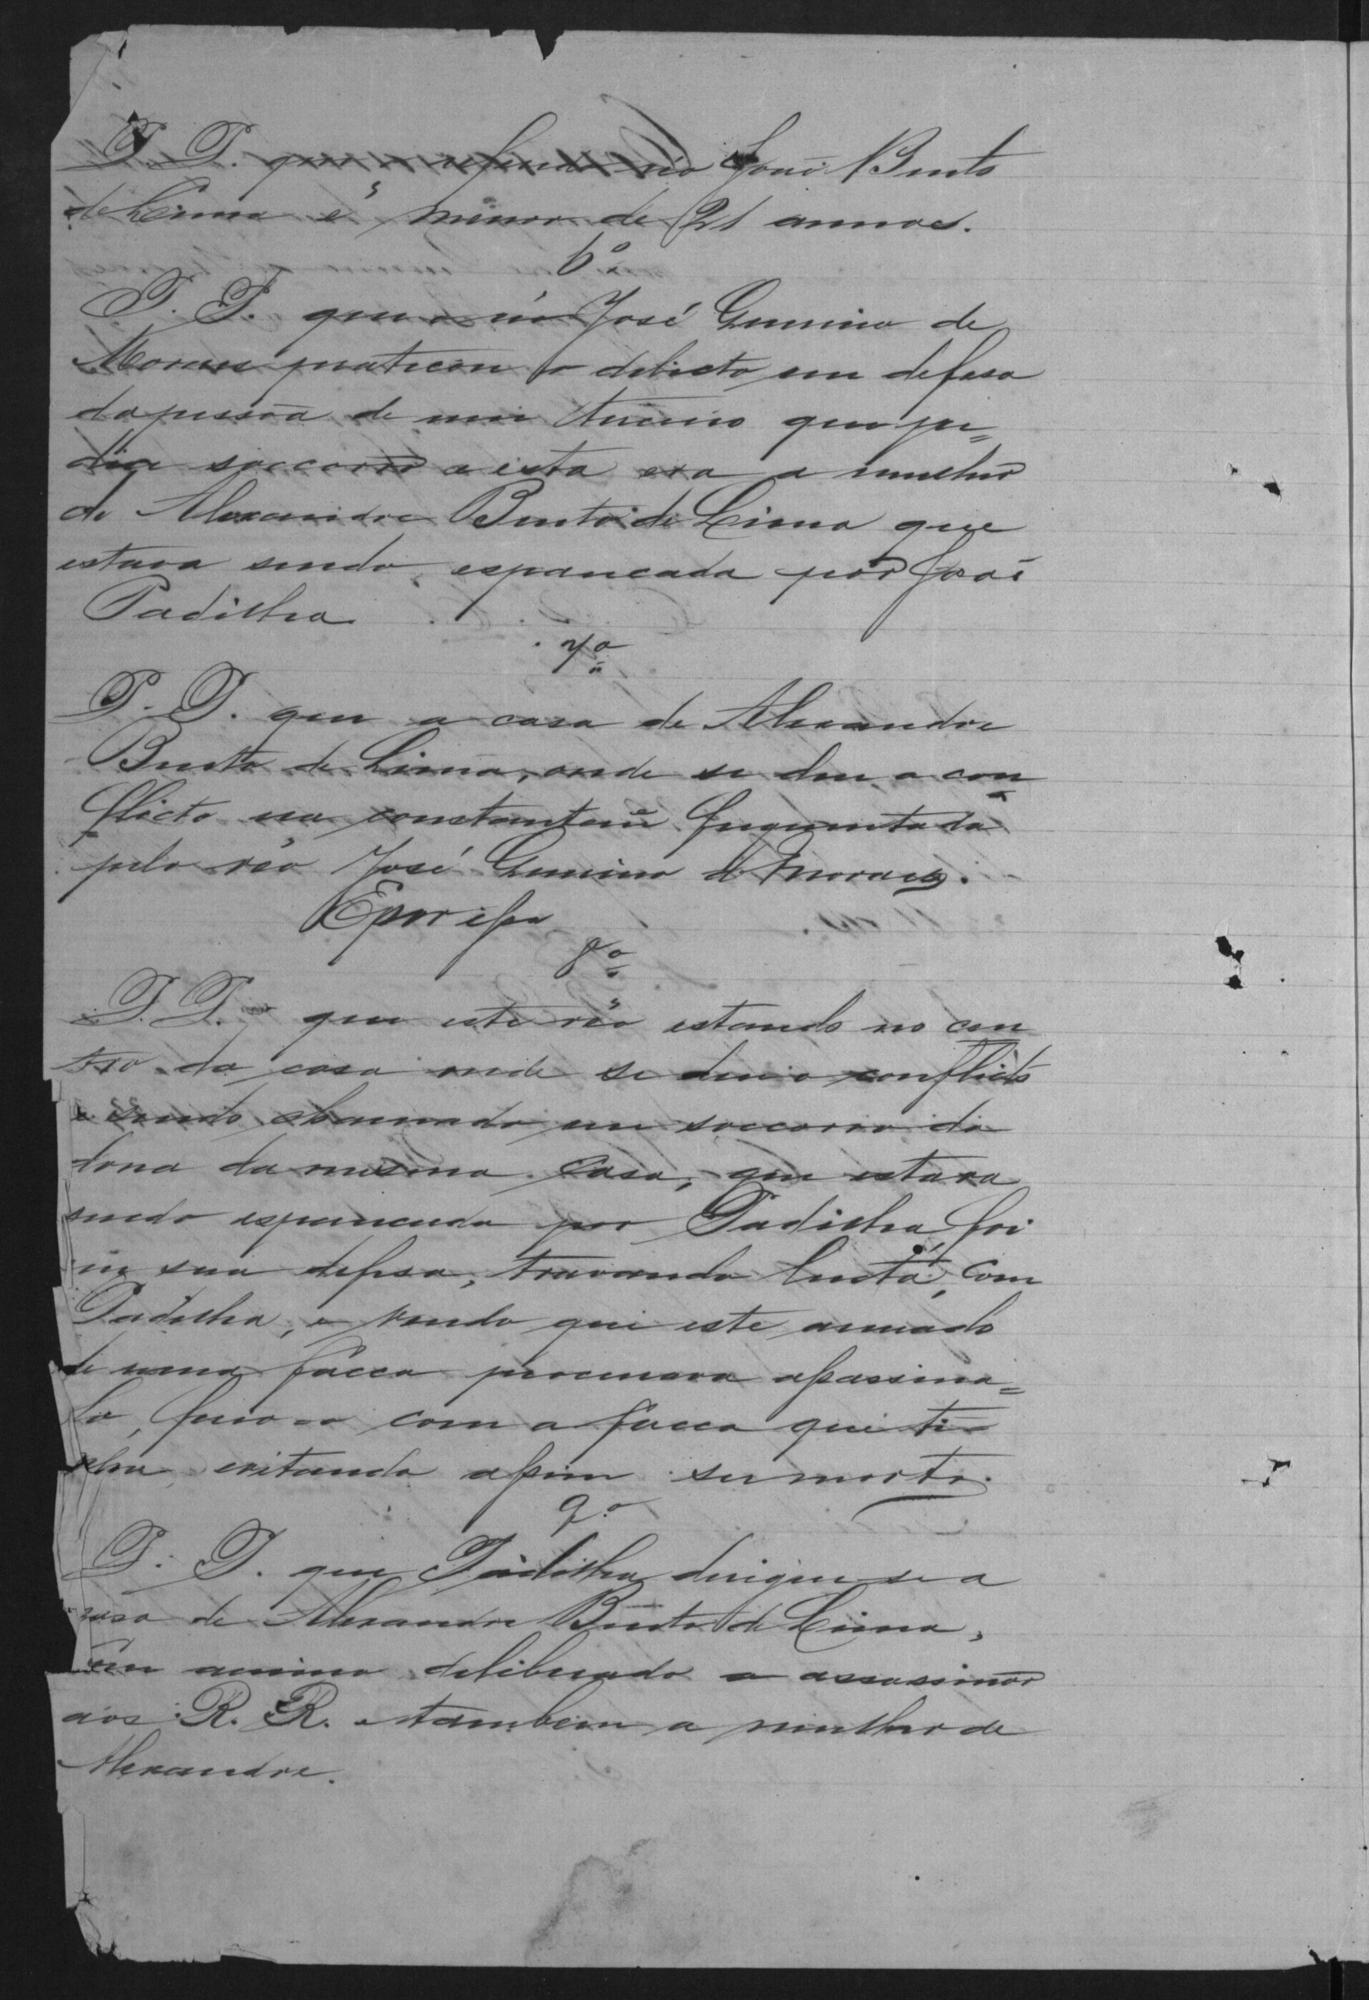 P. P. que o referido réo João Bento
de Lima é menor de 21 annos.
6º
P. P. que o réo José Gumino de
Moraes praticou o delicto em defesa
da pessoa de um terceiro que pe=
dia soccorro e esta era a mulher
de Alexandre Bento de Lima que
estava sendo espancada por José
Padilha
7º
P. P. que a casa de Alexandre
Bento de Lima, onde se deu o con
flicto era constantem.e frequentada
pelo réo José Gumino de Moraes.
E por isso
8º
P. P. que este réo estando no cen
tro da casa onde se deu o conflicto
e sendo chamado em soccorro da
dona da mesma casa, que estava
sendo espancada por Padilha, foi
em sua defesa, travando lucta com
Padilha, e vendo que este armado
de uma facca procurava assassina=
lo, ferio-o com a facca que ti
nha evitando assim ser morto.
9º
P. P. que Padilha dirigiu se a
casa de Alexandre Bento de Lima,
em animo deliberado a assassinar
aos R. R. e tambem a mulher de
Alexandre.